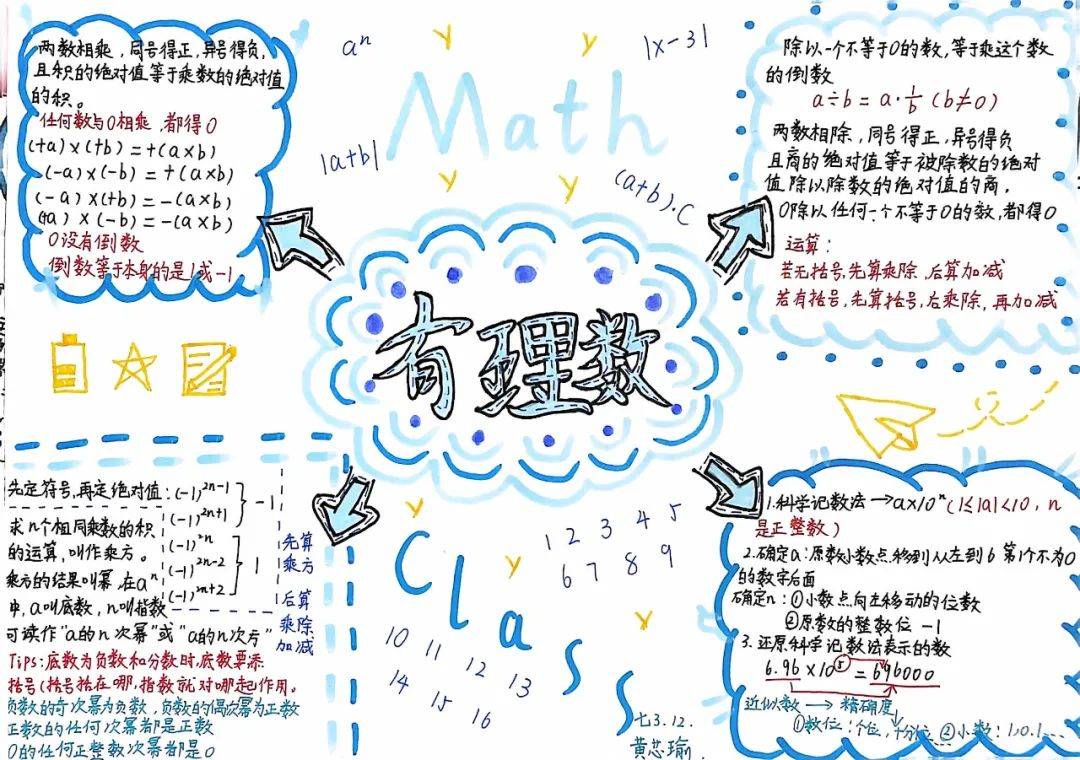 两数相乘，同号得正，异号得负，
且积的绝对值等于乘数的绝对值
的积。
任何数与0相乘，都得0
(+a)×(+b)=+(a×b)
(-a)×(-b)=+(a×b)
(-a)×(+b)=-(a×b)
(+a)×(-b)=-(a×b)
0没有倒数
倒数等于本身的是1或-1.
aⁿ
|x-3|
Math
|a+b|
(a+b)·c
除以一个不等于0的数，等于乘这个数
的倒数
a÷b=a·1/b (b≠0)
两数相除，同号得正，异号得负
且商的绝对值等于被除数的绝对
值除以除数的绝对值的商.
0除以任何一个不等于0的数，都得0
运算：
若无括号，先算乘除，后算加减
若有括号，先算括号，后乘除，再加减
有理数
先定符号，再定绝对值：
求n个相同乘数的积
的运算，叫作乘方。
乘方的结果叫幂，在aⁿ
中，a叫底数，n叫指数
(-1)²ⁿ⁻¹
(-1)²ⁿ⁺¹
-1
(-1)²ⁿ
(-1)²ⁿ⁻²
(-1)²ⁿ⁺²
1
先算
乘方
后算
乘除
加减
可读作"a的n次幂"或"a的n次方"
Tips：底数为负数和分数时，底数要添
括号(括号括在哪，指数就对哪起作用。
负数的奇次幂为负数，负数的偶次幂为正数
正数的任何次幂都是正数
0的任何正整数次幂都是0
Class
1 2 3 4 5
6 7 8 9
10 11 12 13
14 15 16
七3.12.
黄芯瑜.
1.科学记数法→a×10ⁿ(1≤|a|<10，n
是正整数)
2.确定a：原数小数点移到从左到b第1个不为0
的数字后面
确定n：①小数点向左移动的位数
②原数的整数位-1
3.还原科学记数法表示的数
6.96×10⁵=696000
近似数→精确度
①数位：个位，十分位 ②小数：1,0.1....